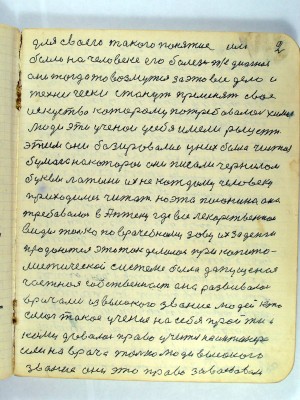 2
для своего такого понятие или
было на человеке его болезн т/е диагноз
они тогда то возмутся за это все дело и
технически станут применят свое
искуство которому потребовался химия
люди эти ученои у себя имели рецепты
этим они базировалис у них была чистая
бумага на которои они писали чернилом
буквы латыни их не каждому человеку
приходилос читат но эта писанина она
требовалас в Аптеку где все лекарственное
виды толко по врачебному зову их за денги
продоются это так делалос при капита-
листической системе была допущеная
частная собственост она развивалас
врачами из высокого звание людеи кто
смог такое учение на себя проити и
кому давалос право учится
если на врача толко люди высокого
звание они это право завоевали